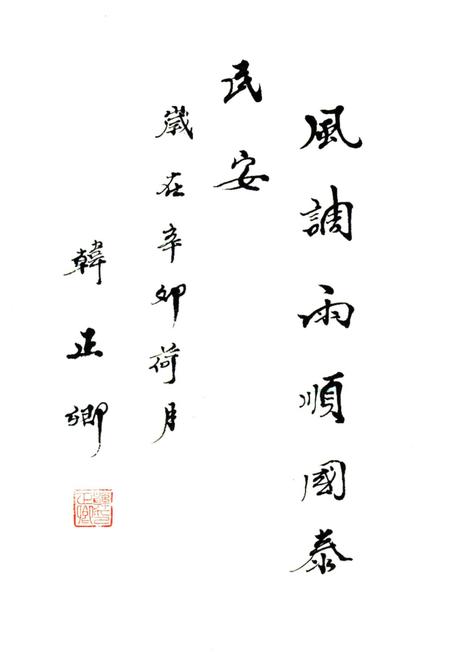 風調雨順國泰
民安
歲在辛卯荷月
韓正卿
韓正卿